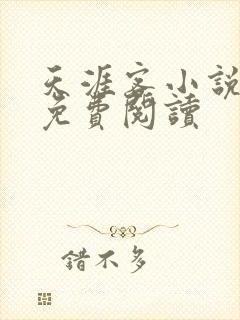 天涯客小說
免費閱讀
錯不多